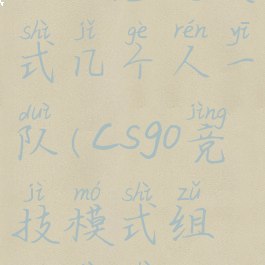 shì jǐ gè rén yī
式几个人一
duì jìng
队(csgo竞
jì mó shì zǔ
技模式组